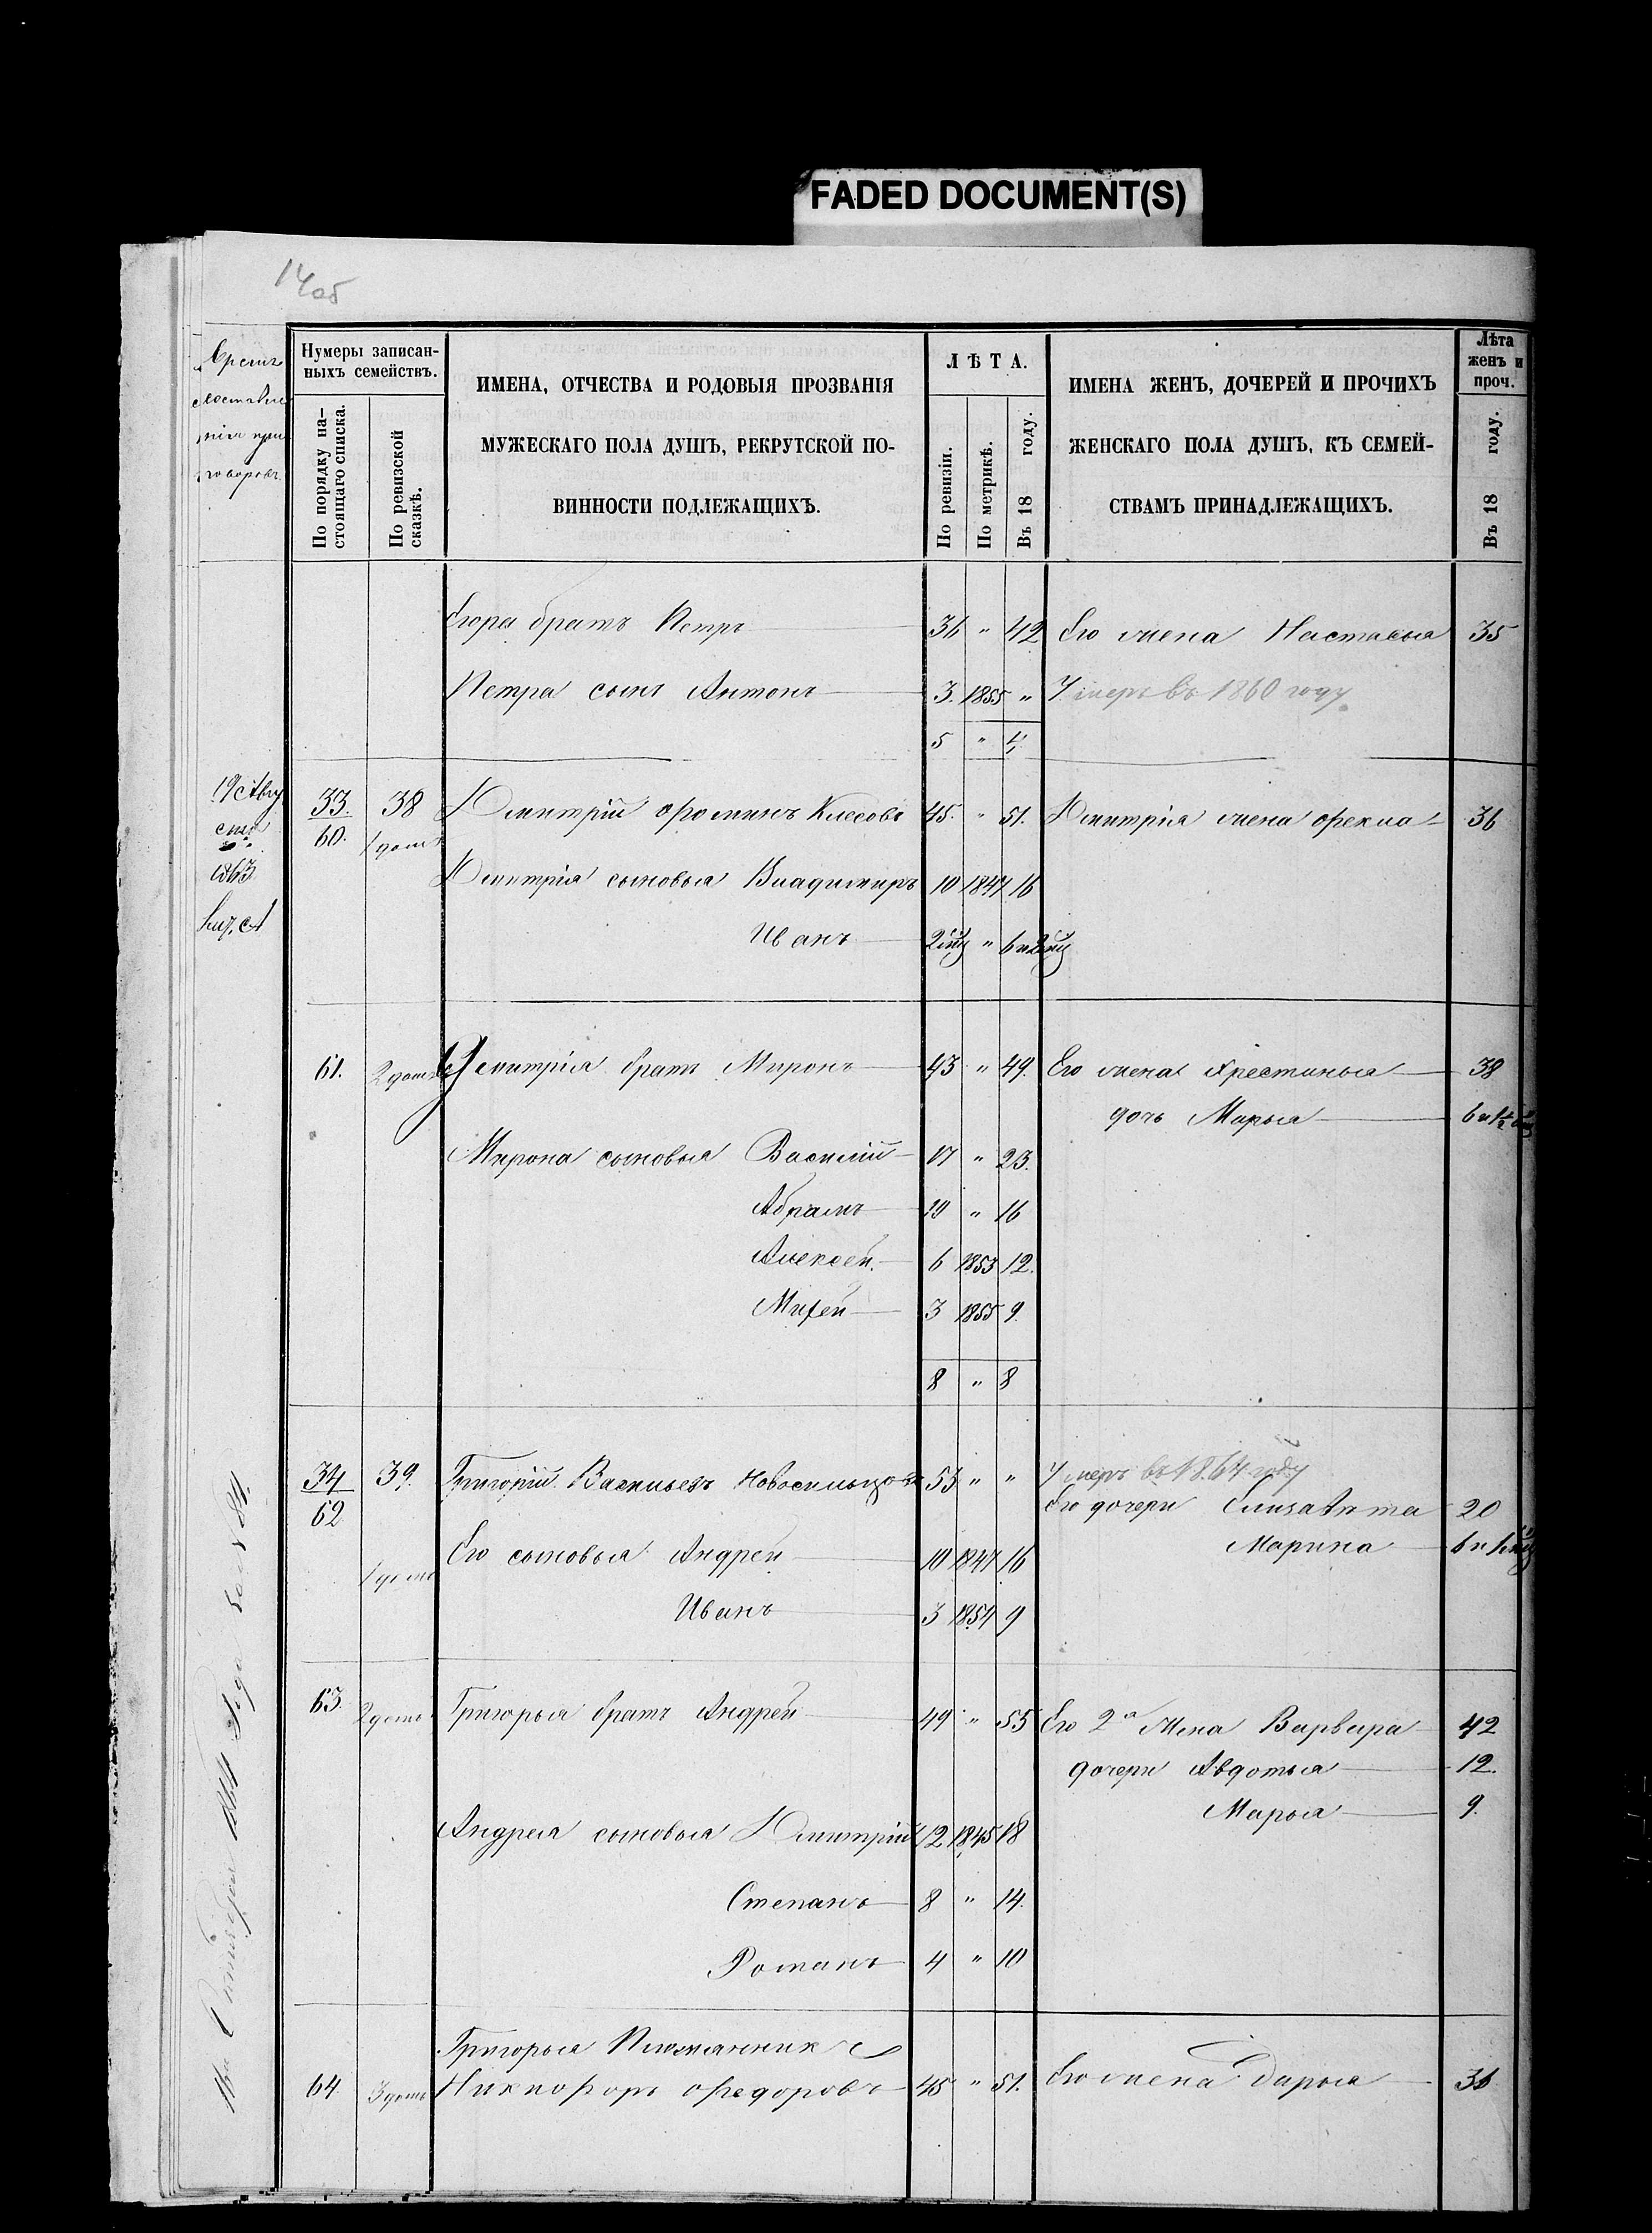 FADED DOCUMENT(S)
14об
Время
составле
нія при
говоровъ
Нумеры записан-
ныхъ семействъ.
По порядку на-
стоящаго списка.
По ревизской
сказкѣ.
ИМЕНА, ОТЧЕСТВА И РОДОВЫЯ ПРОЗВАНІЯ
МУЖЕСКАГО ПОЛА ДУШЪ, РЕКРУТСКОЙ ПО-
ВИННОСТИ ПОДЛЕЖАЩИХЪ.
ЛѢТА.
По ревизіи.
По метрикѣ.
Въ 18 году.
ИМЕНА ЖЕНЪ, ДОЧЕРЕЙ И ПРОЧИХЪ
ЖЕНСКАГО ПОЛА ДУШЪ, КЪ СЕМЕЙ-
СТВАМЪ ПРИНАДЛЕЖАЩИХЪ.
Лѣта
женъ и
проч.
Въ 18 году.
братъ Петръ 36 " 42 Его жена Настасья 35
Петра сынъ Антонъ 3. 1855 " Умеръ въ 1860 году
5 " 4
19 Авгу
ста
1863
33. 38 Дмитрій Фоминъ 45. " 51. Дмитрія жена Фекла 36
60. 1 домъ
Дмитрія сыновья Владимиръ 10 1847 16
Иванъ
61. 2 домъ Дмитрія братъ Миронъ 43 " 49. Его жена Хрестинья 38
дочь Марья
Мирона сыновья Василій 17 " 23.
Абрамъ 10 " 16
Алексей. 6 1853 12.
3 1855 9.
8 " 8
34 39. Григорій Васильевъ Новосильцовъ 53 " " Умеръ въ 1864 году
62 Его дочери Елизавѣта 20
Марина
1 домъ Его сыновья Андрей 10 1847 16
Иванъ 3 1854 9
63. 2 домъ Григорья братъ Андрей 49 " 55 Его 2я жена Варвара 42
дочери Авдотья 12.
Марья 9.
Андрея сыновья Дмитрій 12 1845 18
Степанъ 8 " 14.
Романъ 4 " 10
Григорья Племянник
64. 3 домъ Никифоръ Федоровъ 45 " 51. Его жена Дарья 36